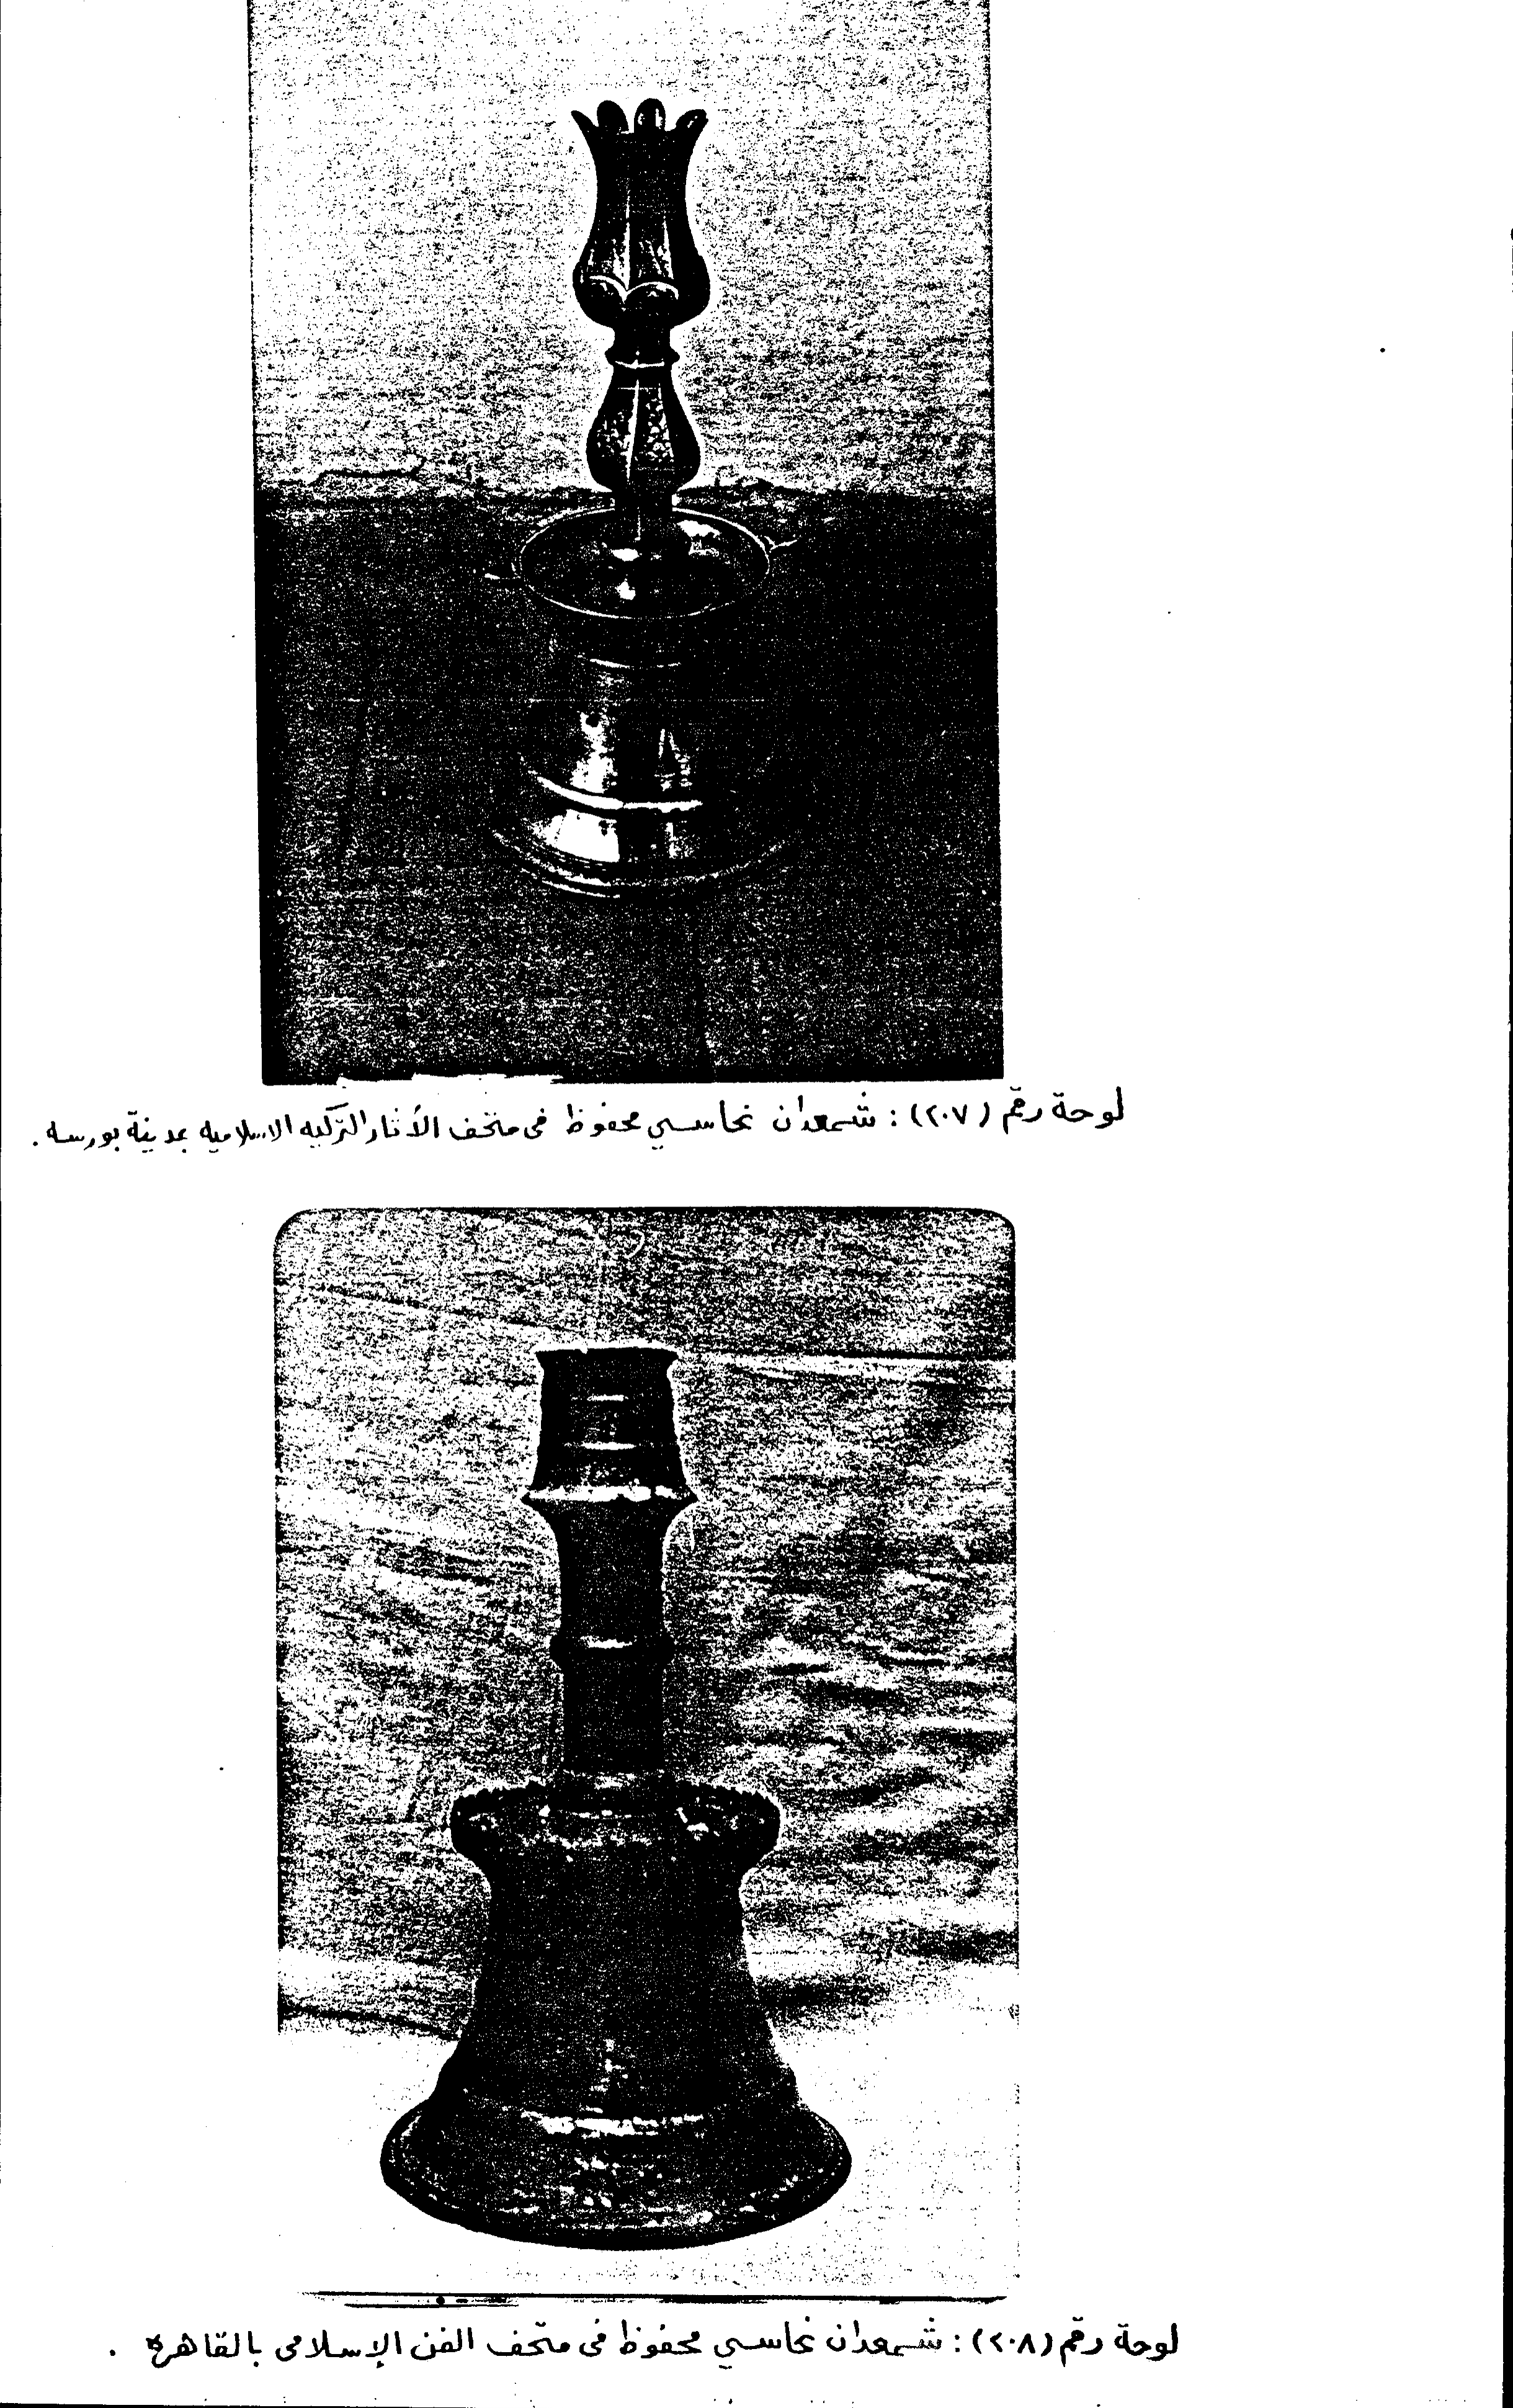 لوحة رقم (٢٠٧) : شمعدان نحاسي محفوظ فى متحف الآثار التركيه الاسلاميه بمدينة بورسه .
لوحة رقم (٢٠٨) : شمعدان نحاسي محفوظ فى متحف الفن الإسلامى بالقاهرة .